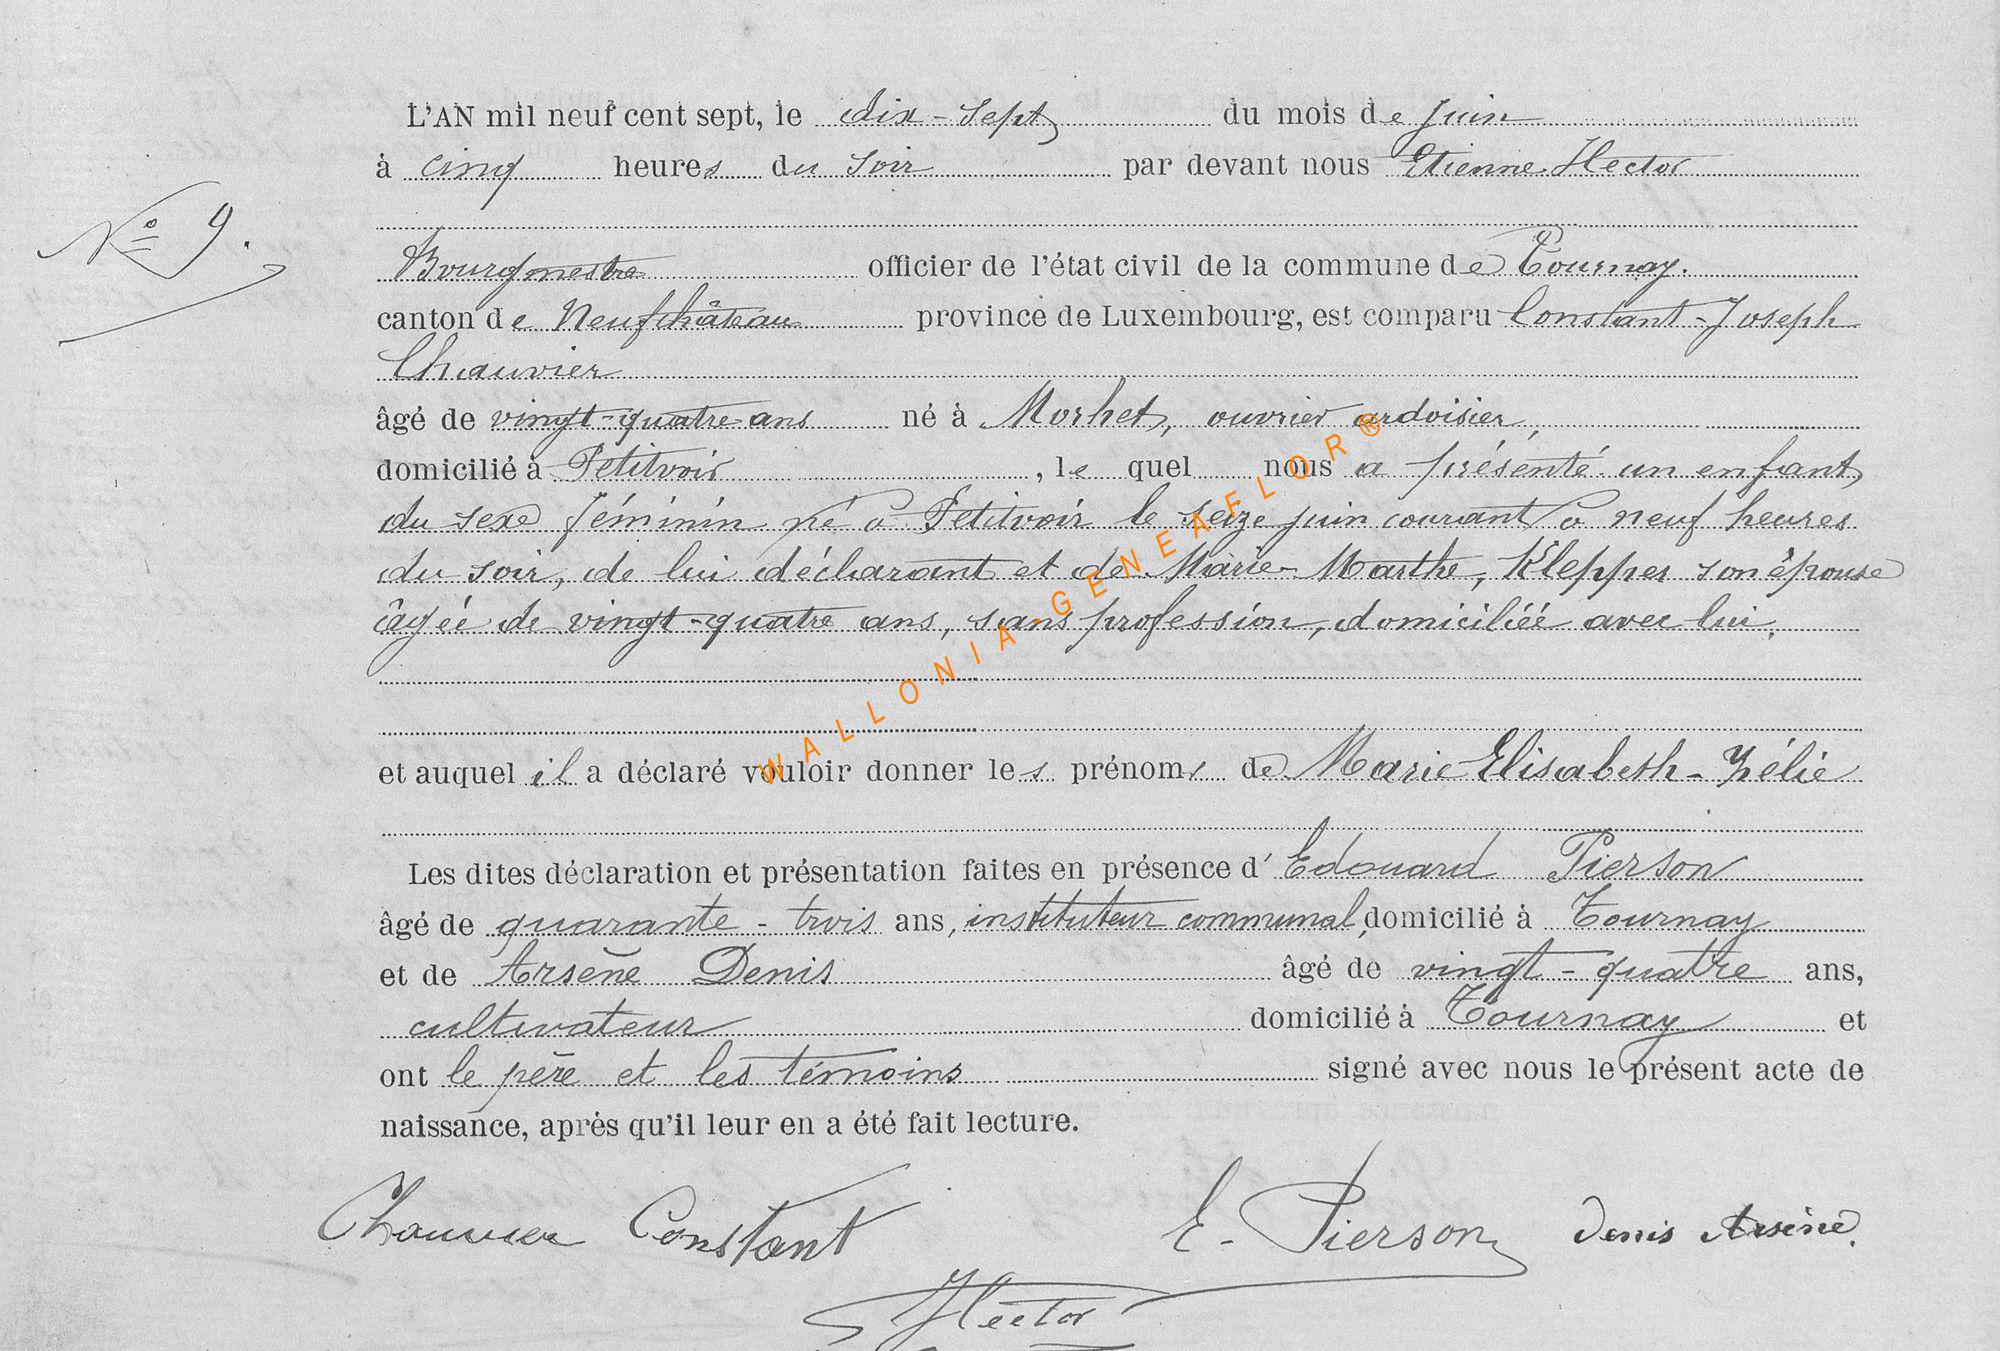 L'AN mil neuf cent sept, le dix-sept du mois de Juin
à cinq heures du soir par devant nous Etienne Hector
N° 9.
Bourgmestre officier de l'état civil de la commune de Tournay.
canton de Neufchâteau province de Luxembourg, est comparu Constant-Joseph
Chauvier
âgé de vingt-quatre ans né à Morhet, ouvrier ardoisier,
domicilié à Petitvoir, le quel nous a présenté un enfant
du sexe féminin né à Petitvoir le seize juin courant à neuf heures
du soir, de lui déclarant et de Marie-Marthe, Klepper son épouse
âgée de vingt-quatre ans, sans profession, domiciliée avec lui.
et auquel il a déclaré vouloir donner les prénoms de Marie Elisabeth-Zélie
Les dites déclaration et présentation faites en présence d'Edouard Pierson
âgé de quarante-trois ans, instituteur communal, domicilié à Tournay
et de Arsène Denis âgé de vingt-quatre ans,
cultivateur domicilié à Tournay et
ont le père et les témoins signé avec nous le présent acte de
naissance, après qu'il leur en a été fait lecture.
Chauvier Constant E. Pierson Denis Arsène.
Hector
WALLONIA-GENEAFLOR®